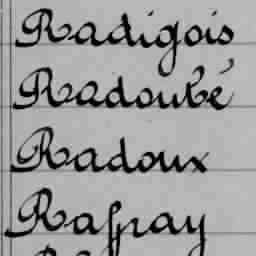 Radigois
Radoubé
Radoux
Raffray